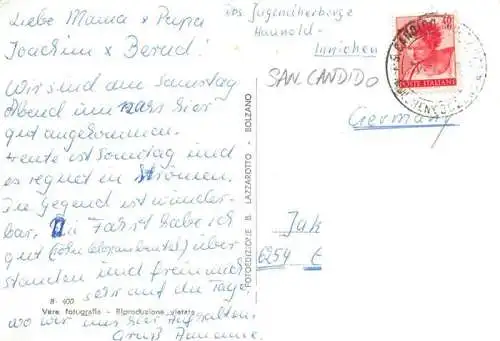 Liebe Mama + Papa
Joachim + Bernd!
Wir sind am Samstag
Abend um hier
gut angekommen.
Heute ist Sonntag und
es regnet in Strömen.
Die Gegend ist wunder-
bar. Die Fahrt habe ich
gut (ohne ) über-
standen und freu mich
sehr auf die Tage
wo wir uns hier aufhalten.
Gruß Annemie.
B - 400
Vera fotografia - Riproduzione vietata
FOTOEDIZIONE B. LAZZAROTTO - BOLZANO
Jugendherberge
Innichen
SAN CANDIDO
Germany
6254
POSTE ITALIANE
S. CANDIDO